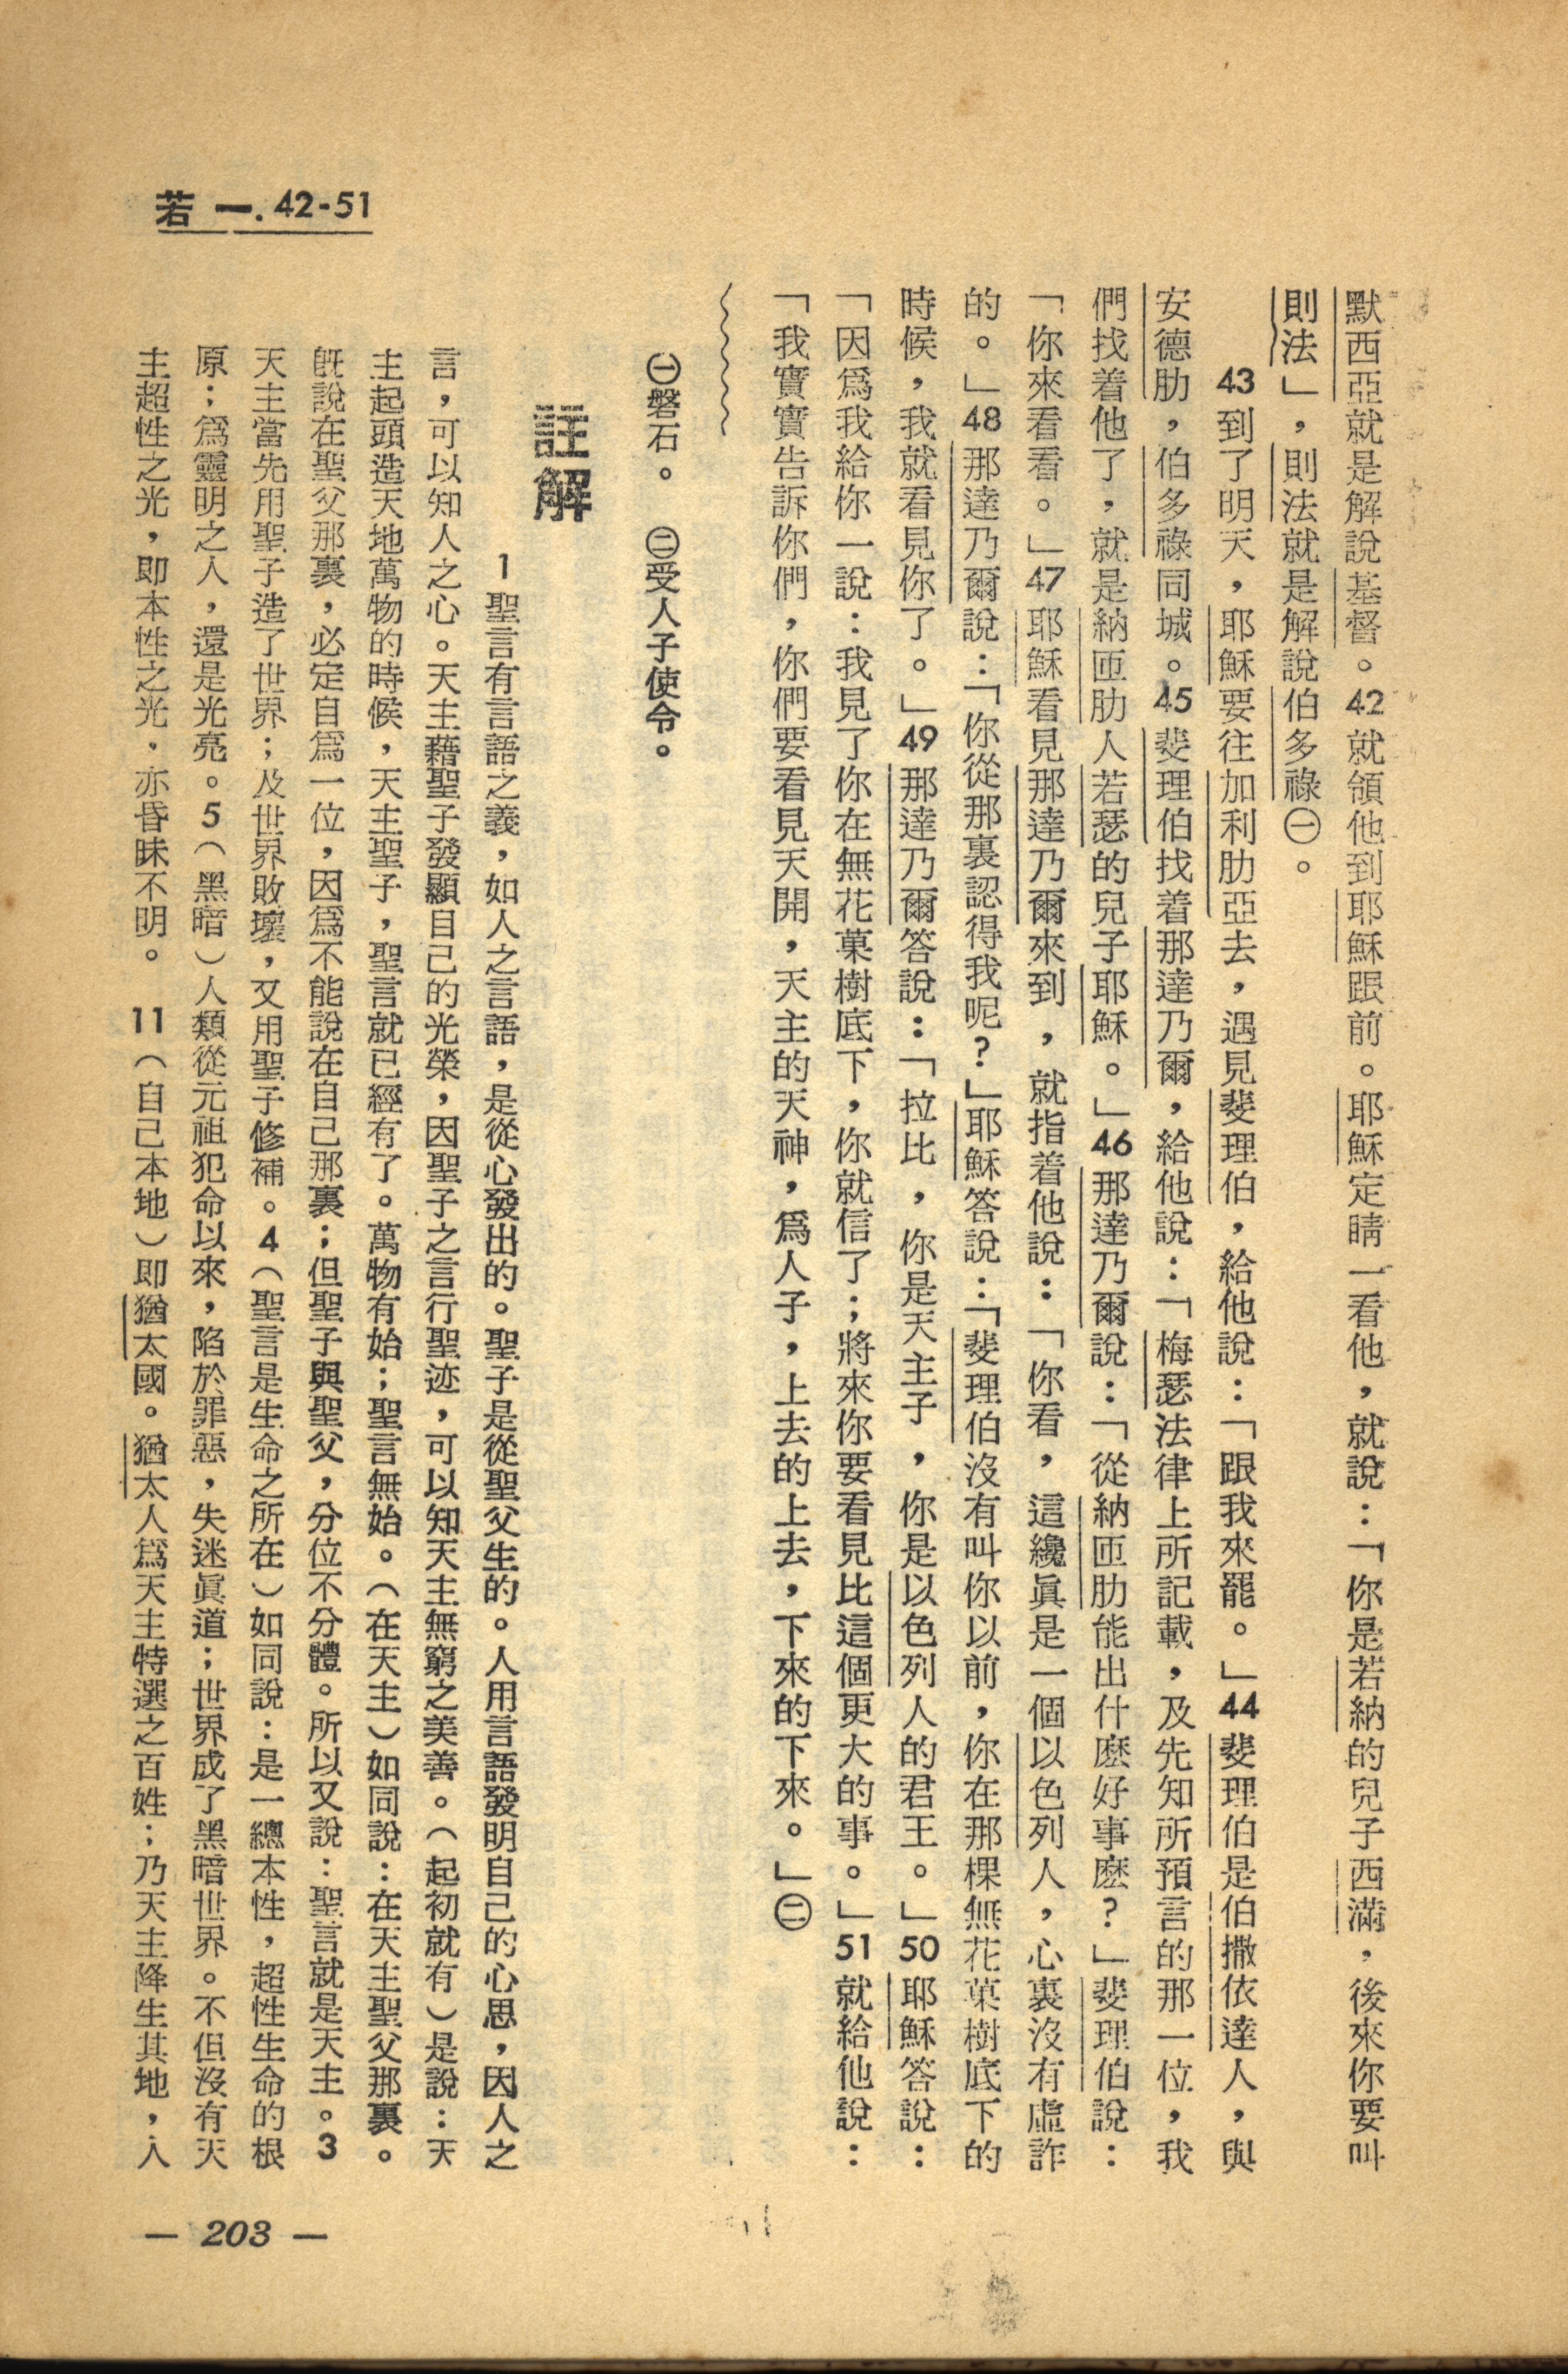 若 一. 42-51
默西亞就是解說基督。42就領他到耶穌跟前。耶穌定睛一看他，就說：「你是若納的兒子西滿，後來你要叫
則法」，則法就是解說伯多祿㊀。
43到了明天，耶穌要往加利肋亞去，遇見斐理伯，給他說：「跟我來罷。」44斐理伯是伯撒依達人，與
安德肋，伯多祿同城。45斐理伯找着那達乃爾，給他說：「梅瑟法律上所記載，及先知所預言的那一位，我
們找着他了，就是納匝肋人若瑟的兒子耶穌。」46那達乃爾說：「從納匝肋能出什麽好事麽？」斐理伯說：
「你來看看。」47耶穌看見那達乃爾來到，就指着他說：「你看，這纔眞是一個以色列人，心裏沒有虛詐
的。」48那達乃爾說：「你從那裏認得我呢？」耶穌答說：「斐理伯沒有叫你以前，你在那棵無花菓樹底下的
時候，我就看見你了。」49那達乃爾答說：「拉比，你是天主子，你是以色列人的君王。」50耶穌答說：
「因爲我給你一說：我見了你在無花菓樹底下，你就信了；將來你要看見比這個更大的事。」51就給他說：
「我實實告訴你們，你們要看見天開，天主的天神，爲人子，上去的上去，下來的下來。」㊁
㊀磐石。 ㊁受人子使令。
註解
1聖言有言語之義，如人之言語，是從心發出的。聖子是從聖父生的。人用言語發明自己的心思，因人之
言，可以知人之心。天主藉聖子發顯自己的光榮，因聖子之言行聖迹，可以知天主無窮之美善。（起初就有）是說：天
主起頭造天地萬物的時候，天主聖子，聖言就已經有了。萬物有始；聖言無始。（在天主）如同說：在天主聖父那裏。
旣說在聖父那裏，必定自爲一位，因爲不能說在自己那裏；但聖子與聖父，分位不分體。所以又說：聖言就是天主。3
天主當先用聖子造了世界；及世界敗壞，又用聖子修補。4（聖言是生命之所在）如同說：是一總本性，超性生命的根
原；爲靈明之人，還是光亮。5（黑暗）人類從元祖犯命以來，陷於罪惡，失迷眞道；世界成了黑暗世界。不但沒有天
主超性之光，即本性之光，亦昏昧不明。 11（自己本地）即猶太國。猶太人爲天主特選之百姓；乃天主降生其地，人
— 203 —